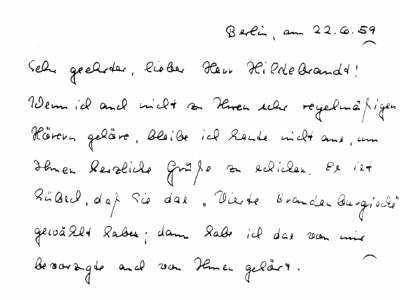 Berlin, am 22.6.59
Sehr geehrter, lieber Herr Hildebrandt!
Wenn ich auch nicht zu Ihren sehr regelmäßigen
Hörern gehöre, bleibe ich heute nicht aus, um
Ihnen herzliche Grüße zu schicken. Es ist
hübsch, daß Sie das "Vierte Brandenburgische"
gewählt haben; dann habe ich das von mir
bevorzugte auch von Ihnen gehört.